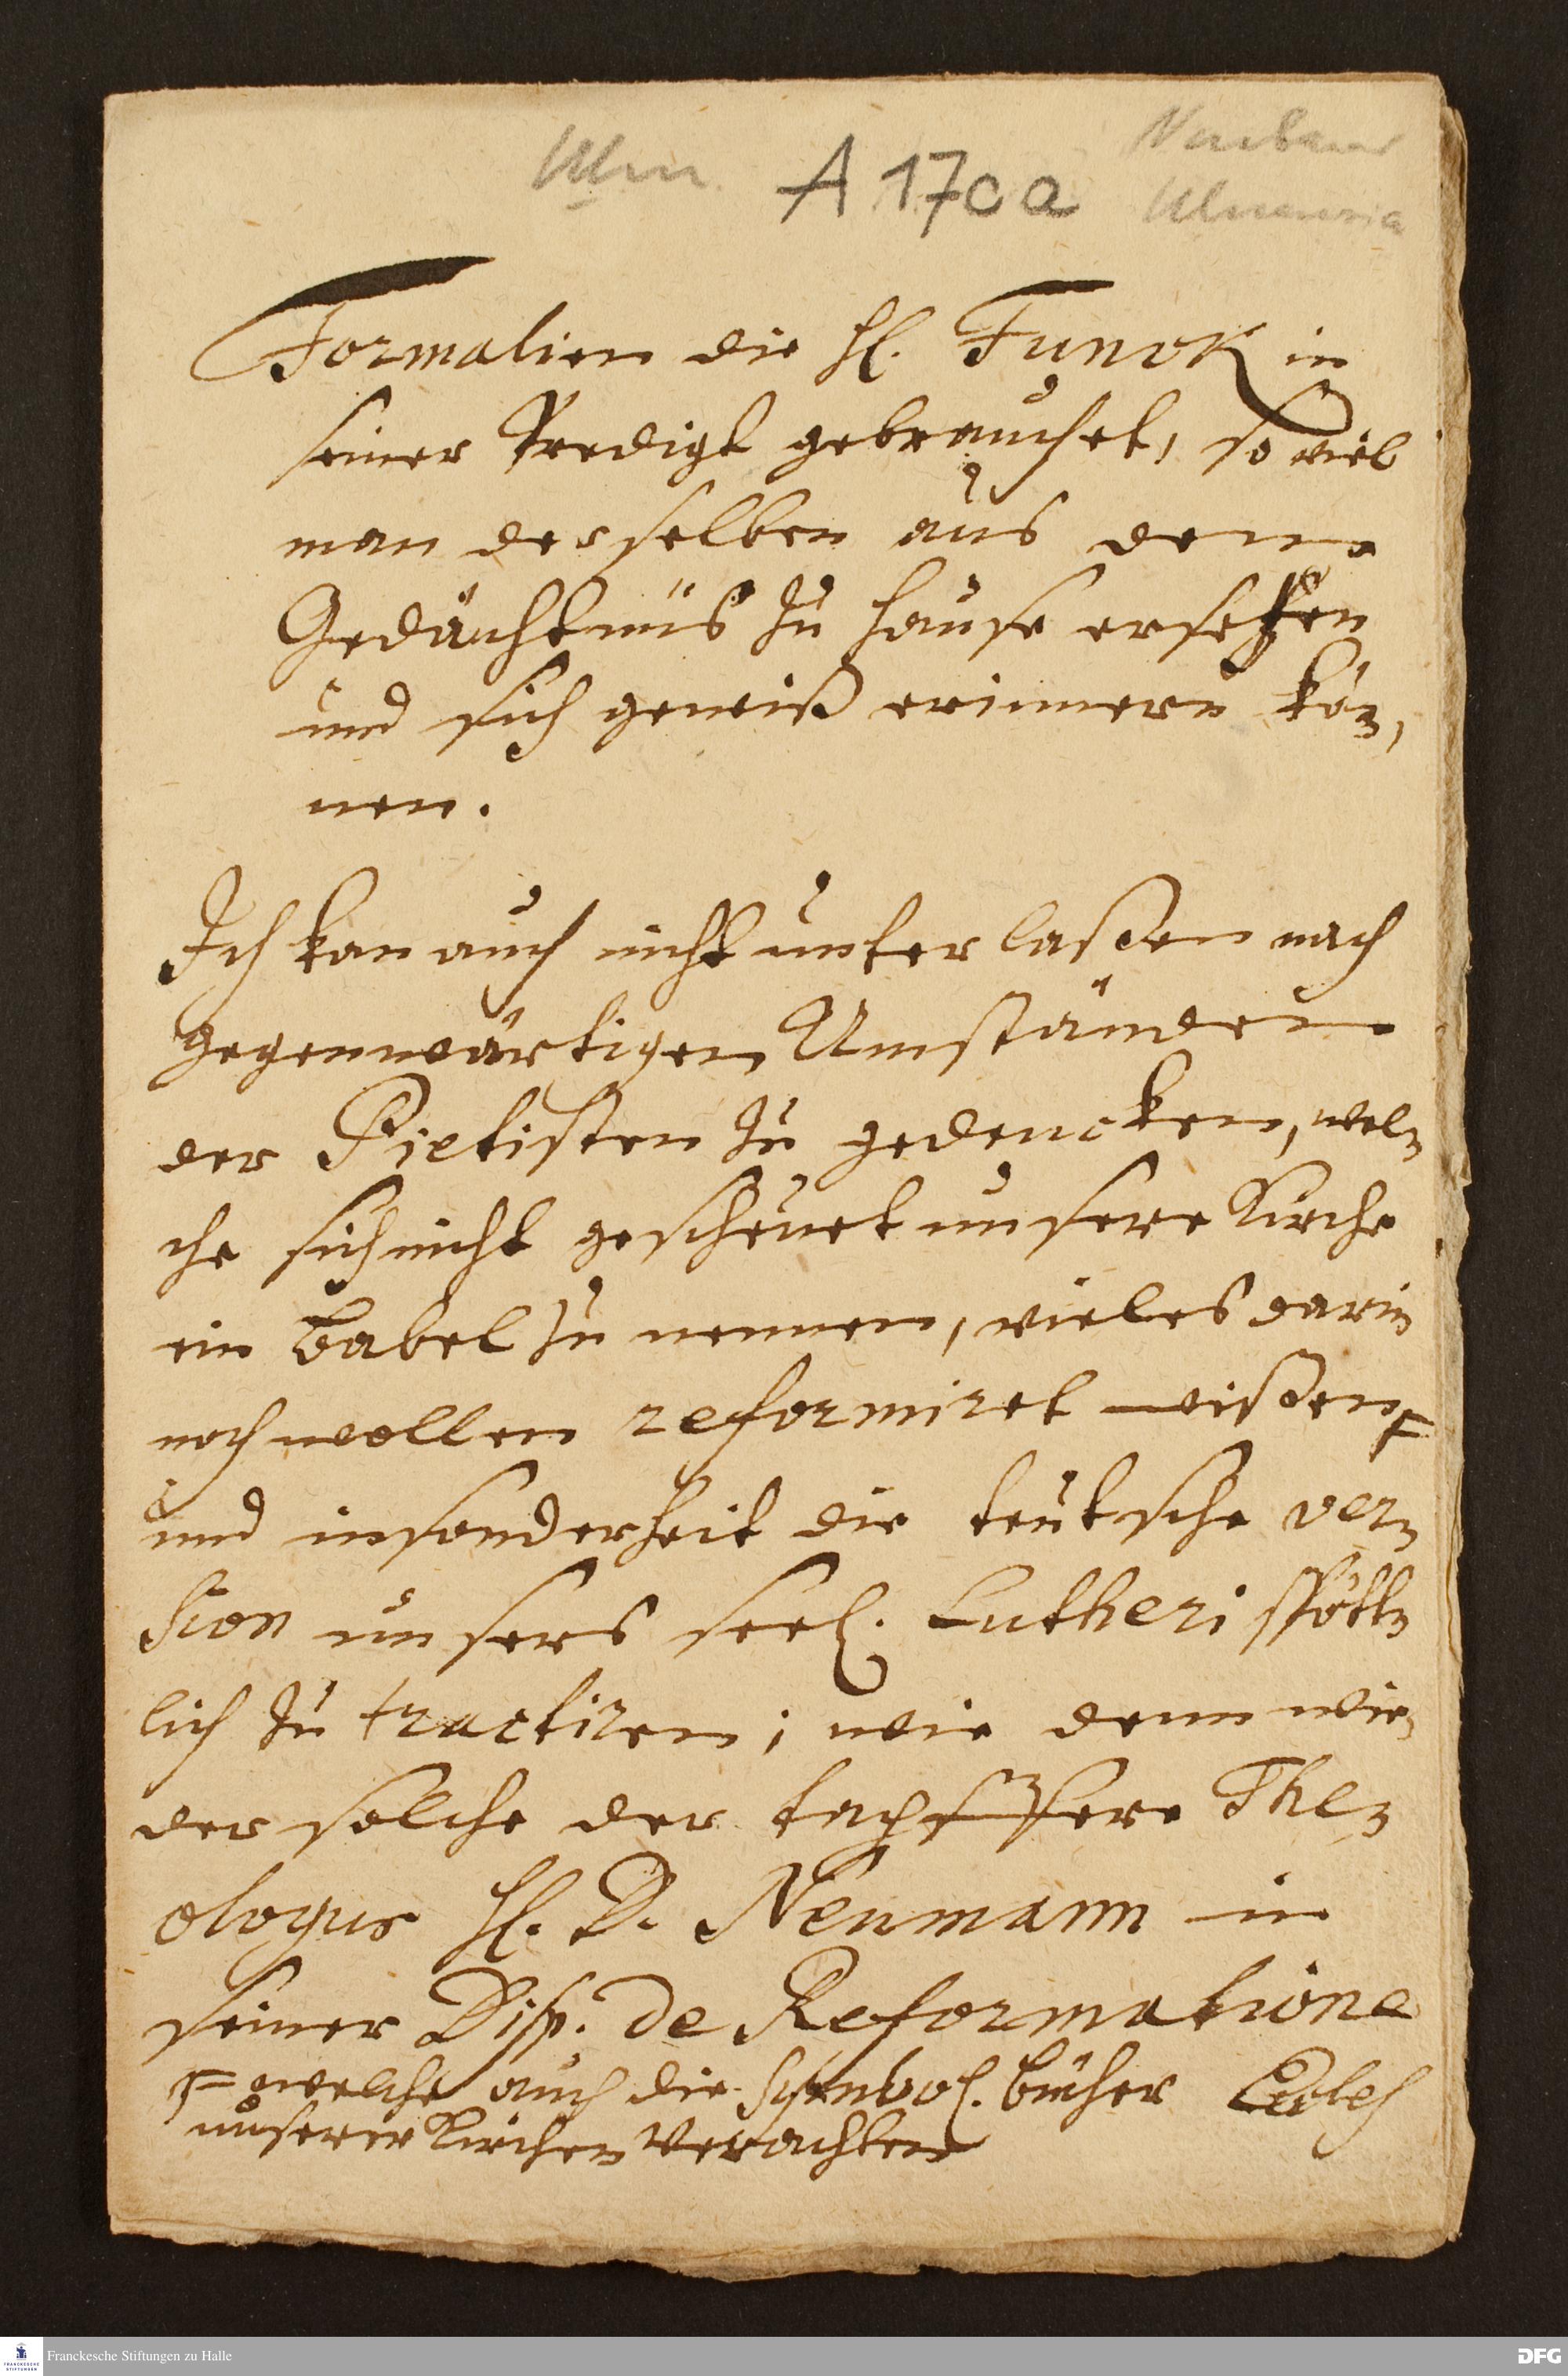 Ulm. A 170 a Neubaur
Ulmensia
Formalien die H. Funck in
seiner Predigt gebrauchet, so viel
man derselben aus dem
Gedächtnüs zu Hause ersetzen
und sich gewiß erinnern kön=
nen.
Ich kan auch nicht unterlaßen nach
gegenwärtigen Umständen
der Pietisten zu gedencken, wel=
che sich nicht gescheuet unsere Kirche
ein Babel zu nennen, vieles darin
noch wollen reformiret wißen
und insonderheit die teutsche ver=
sion unsers seel. Lutheri spött=
lich zu tractiren; wie denn wie=
der solche der tapfere The=
ologus H. D. Neumann in
seiner Disp. de Reformatione
welche auch die Symbol. bücher Eccles
unserer Kirchen verachten
Franckesche Stiftungen zu Halle
DFG